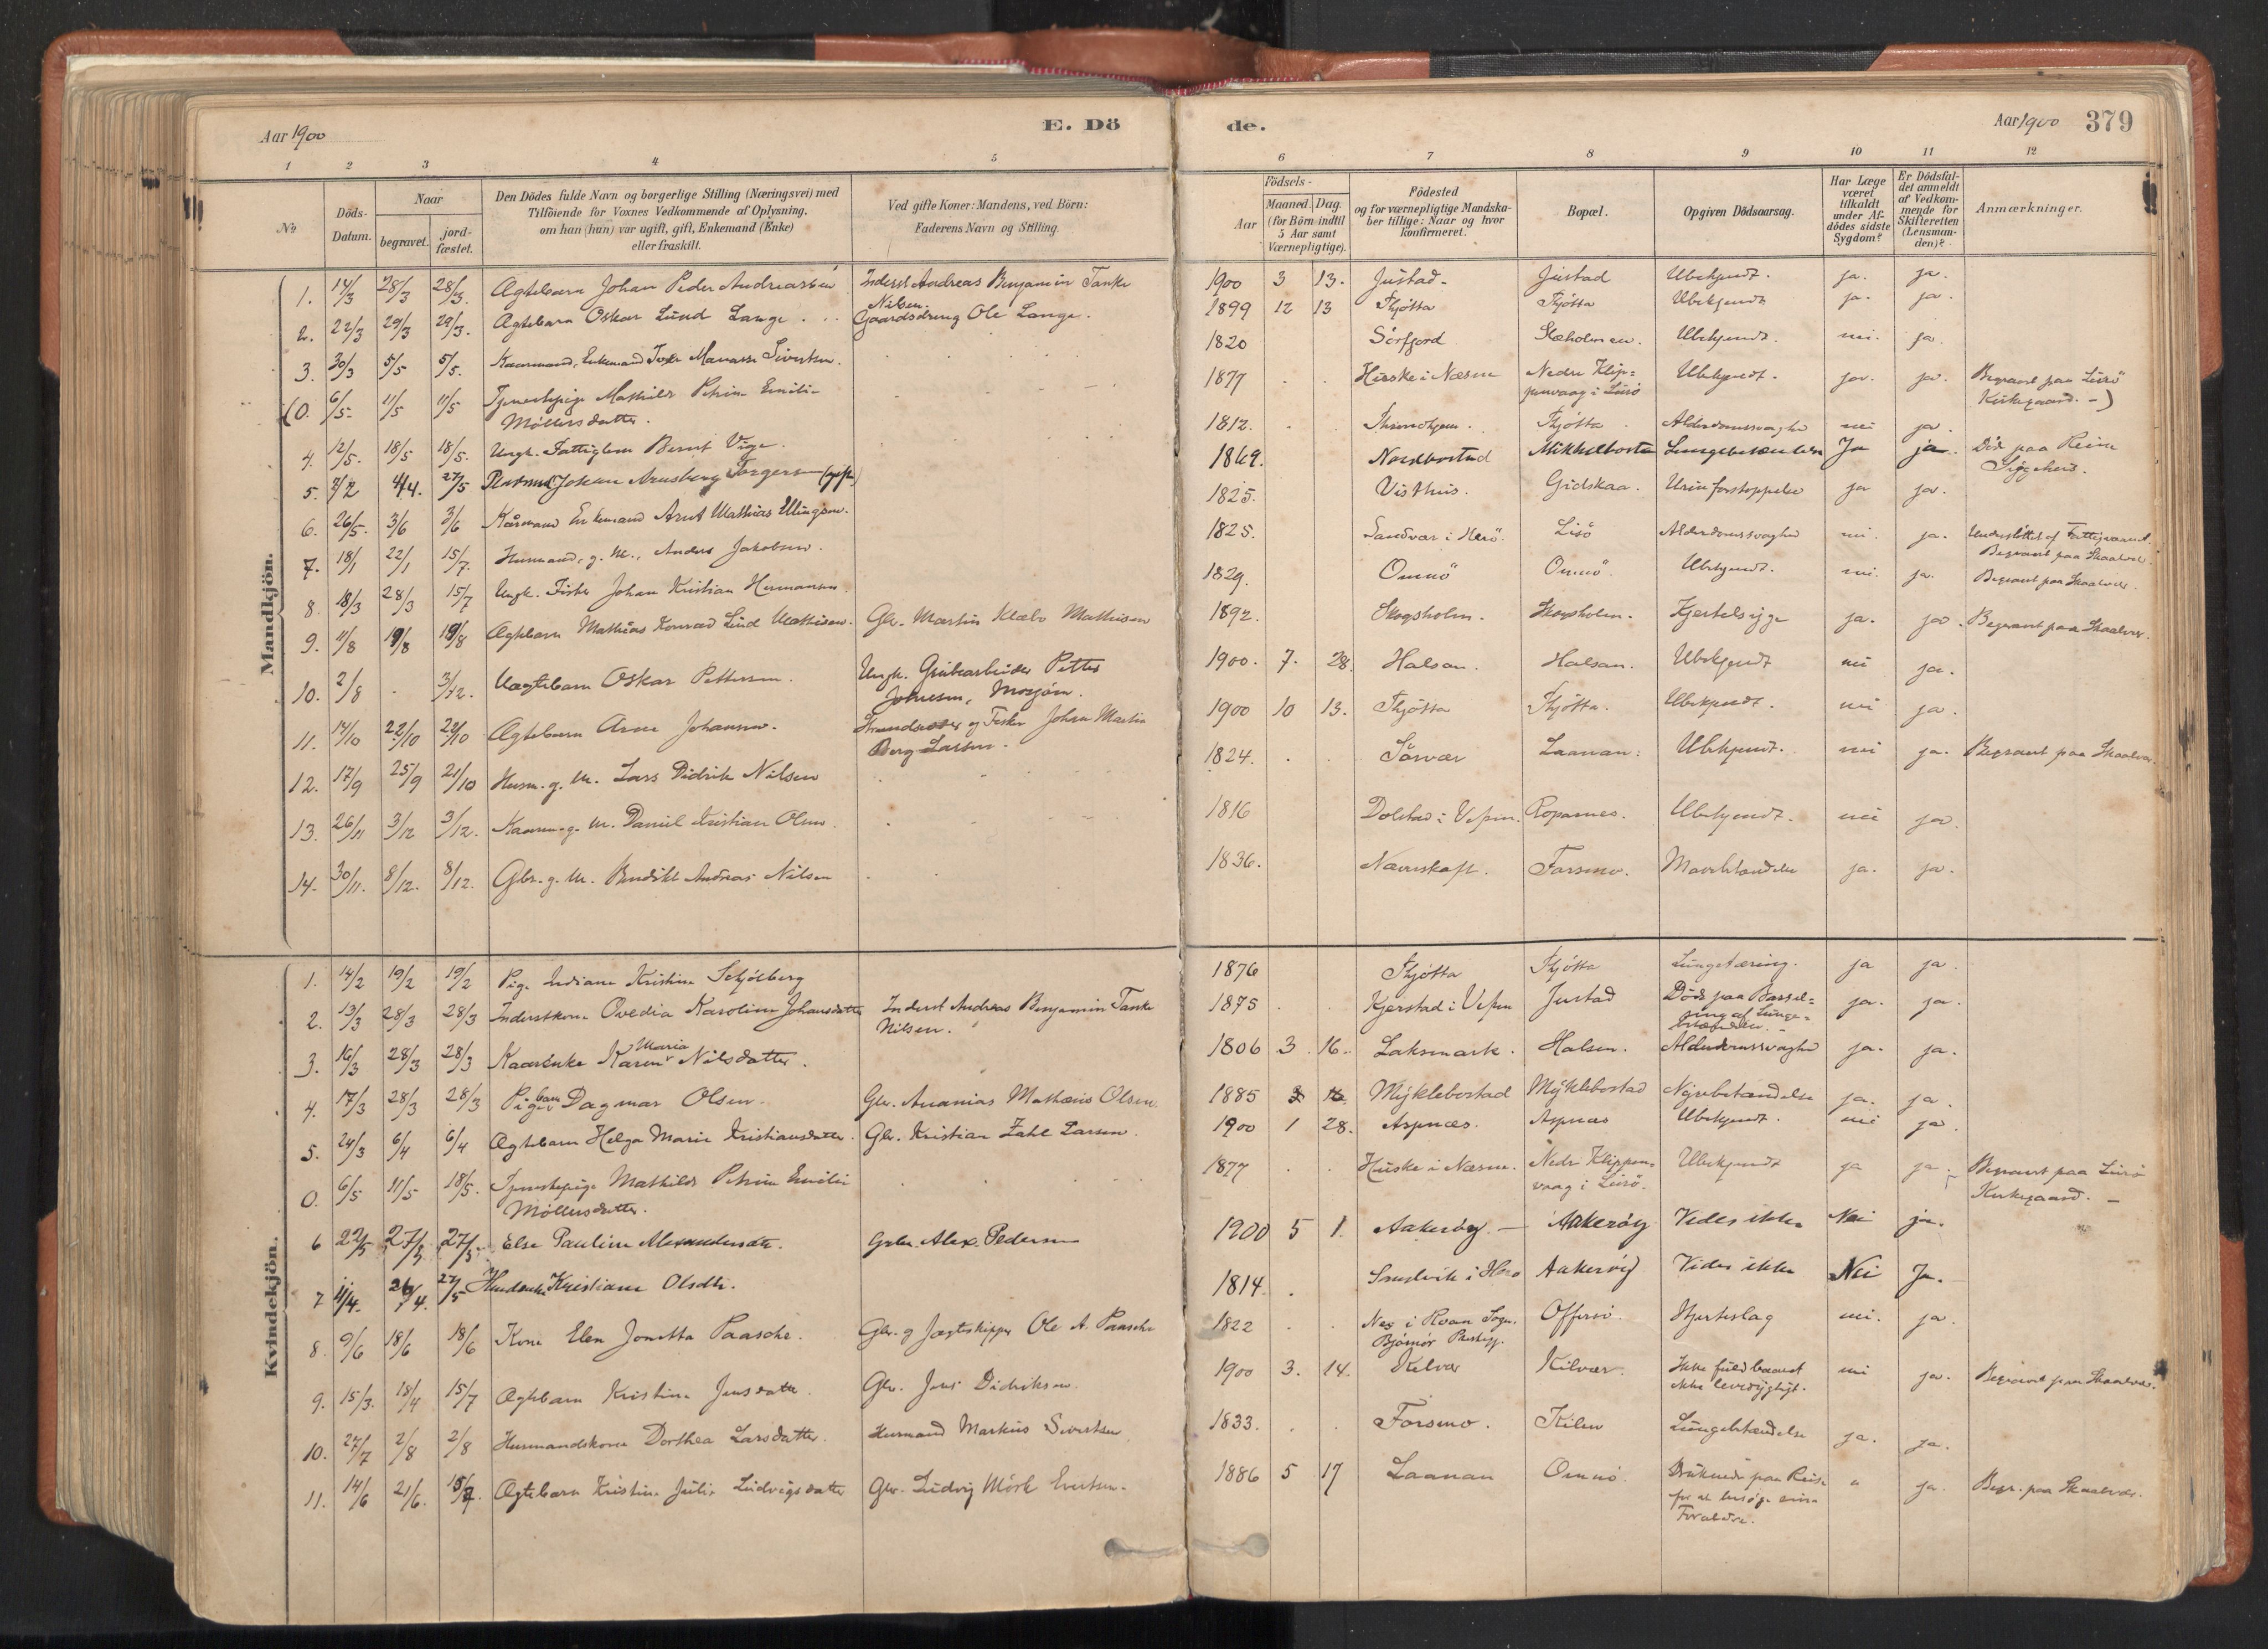 Aar 1900
E. Dö
de.
Aar 1900
379
1 2 3 4 5 6 7 8 9 10 11 12
№
Döds-Datum.
Naar
begravet.
jord-fæstet.
Den Dödes fulde Navn og borgerlige Stilling (Næringsvei) med
Tilföiende for Voxnes Vedkommende af Oplysning,
om han (hun) var ugift, gift, Enkemand (Enke)
eller fraskilt.
Ved gifte Koner: Mandens, ved Börn:
Faderens Navn og Stilling.
Födsels-
Aar
Maaned. Dag.
(for Börn indtil
5 Aar samt
Værnepligtige).
Födested
og for værnepligtige Mandska-
ber tillige: Naar og hvor
konfirmeret.
Bopæl.
Opgiven Dödsaarsag.
Har Læge
været
tilkaldt
under Af-
dödes sidste
Sygdom?
Er Dödsfal-
det anmeldt
af Vedkom-
mende for
Skifteretten
(Lensman-
den)?
Anmærkninger.
Mandkjön.
1. 14/3 28/3 28/3. Ægtebarn Johan Peder Andreassen Inderst Andreas Benjamin Tanke Nilsen. 1900 3 13. Justad. Justad Ubekjendt. ja. ja.
2. 22/3 29/3 29/3. Ægtebarn Oskar Lund Lange. Gaardsdreng Ole Lange. 1899 12 13 Thjötta Thjötta Ubekjendt ja. ja.
3. 30/3 5/5 5/5. Kaarmand, Enkemand Manasse Sivertsen. 1820 Sörfjord Ubekjendt. nei. ja.
(0. 6/5 11/5 11/5 Tjenestepige Mathilde Petrine Emilie
Möllersdatter. 1877 Huske i Næsne Nedre Klip-
penvaag i Lurö Ubekjendt. ja. ja. Begravet paa Lurö
Kirkegaard. -)
4. 12/5. 18/5 18/5. Ungk. Fattiglem Bernt Vige. 1812. Thjötta Alderdomssvaghed nei ja.
5. 2/2 4/4. 27/5 Johan Arnsberg Torgersen (gift) 1869. Nordbostad Mikkelbostad Lungebetændelse Ja ja. Död paa Reise
6. 26/5. 3/6 3/6 Kårmand Enkemand Arnt Mathias Ellingsen. 1825. Visthus. Gidskaa. Urinforstoppelse ja ja.
7. 18/1 22/1 15/7. Husmand, g. M., Anders Jakobsen. 1825. Sandvær i Herö. Lisö Alderdomssvaghed nei. ja. Understöttet af Fattigvæsenet.
Begravet paa Skaalvær.
8. 18/3 28/3 15/7 Ungk. Fisker Johan Kristian Hermansen. 1829. Omnö Omnö. Ubekjendt. nei. ja. Begravet paa Skaalvær.
9. 11/8 19/8 19/8 Ægtebarn Mathias Konrad Lind Mathisen. Gbr. Martin Klæbo Mathisen 1892. Skogsholm. Skogsholm. Kjertelsyge ja. ja. Begravet paa Skaalvær.
10. 2/8 3/12. Uægtebarn Oskar Pettersen. Ungk. Grubearbeider Petter
Johnsen, Mosjöen. 1900. 7. 28. Halsan. Halsan. Ubekjendt nei ja.
11. 14/10 22/10 22/10 Ægtebarn Arne Johansen. Strandsidder og Fisker Johan Martin
Berg Larsen. 1900 10 13. Thjötta Thjötta. Ubekjendt. nei ja.
12. 17/9 25/9 21/10 Husm. g. M. Lars Didrik Nilsen 1824. Sörvær Laanan. Ubekjendt. nei ja. Begravet paa Skaalvær.
13. 26/11 3/12 3/12. Kaarm. g. M. Daniel Kristian Olsen 1816 Dolstad i Vefsen. Roparnes. Ubekjendt. nei ja.
14. 30/11. 8/12. 8/12. Gbr. g. M. Bendikt Andreas Nilsen 1836. Nævneskaft. Forsmo. Mavebetændelse ja. ja.
Kvindekjön.
1. 14/2 19/2 19/2 Pige Indiane Kristine Schjölberg 1876 Thjötta Thjötta Lungetæring. ja ja.
2. 13/3 28/3 28/3 Inderstkone Ovedia Karoline Johansdatter Inderst Andreas Benjamin Tanke
Nilsen. 1875 Kjerstad i Vefsen Justad Döde paa Barsel-
seng af Lunge-
betændelse. ja. ja.
3. 16/3 28/3 28/3 Kaarenke Karen Maria Nilsdatter. 1806 3 16. Laksmark. Halsen. Alderdomssvaghed ja. ja.
4. 17/3 28/3 28/3 Pigebarn Dagmar Olsen Gbr. Ananias Mathæus Olsen. 1885 Mÿklebostad Mÿklebostad Nyrebetændelse ja. ja.
5. 24/3 6/4 6/4 Ægtebarn Helga Marie Kristiansdatter. Gbr. Kristian Zahl Larsen. 1900 1 28. Aspnæs. Aspnæs Ubekjendt. nei ja.
0. 6/5 11/5 18/5. Tjenestepige Mathilde Petrine Emilie
Möllersdatter. 1877 Huske i Næsne. Nedr. Klippen-
vaag i Lurö. Ubekjendt ja ja. Begravet paa Lurö
Kirkegaard. -
6 22/5 27/5 27/5. Else Pauline Alexandersdtr. Gbr. Alex. Pedersen 1900 5 1. Aakeröy. Aakeröy Vides ikke Nei ja.
7 11/4. 26/4. 27/5 Kristiane Olsdtr. 1814. Sandvik i Herö Aakeröy Vides ikke Nei Ja.
8. 9/6 18/6 18/6 Kone Elen Jonetta Paasche. Gbr. og Jægtskipper Ole A. Paasche 1822 Nes i Roan Sogn.
Bjömör Prestegj. Offersö. Hjerteslag nei. ja.
9. 15/3. 18/4 15/7 Ægtebarn Kristine Jensdatter. Gbr. Jens Didriksen. 1900 3. 14. Kilvær Kilvær. Ikke fuldbaaret
ikke levedygtigt. nei ja. Begravet paa Skaalvær.
10. 27/7 2/8 2/8 Husmandskone Dorthea Larsdatter. Husmand Markus Sivertsen 1833. Forsmo. Kilen Lungebetændelse ja. ja.
11. 14/6 21/6. 15/7. Ægtebarn Kristine Julie Ludvigsdatter Gbr. Ludvig Mörk Evertsen. 1886 5 17 Laanan Omnö. Druknede paa Reise
for at besöge sine
Forældre. " ja. Begr. paa Skaalvær.